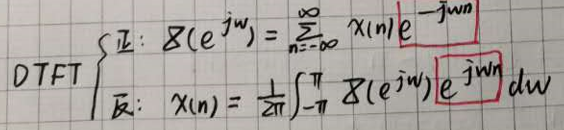 DTFT { 正: X(e^{jω}) = \sum_{n=-∞}^{∞} x(n) e^{-jωn}
反: x(n) = \frac{1}{2π} \int_{-π}^{π} X(e^{jω}) e^{jωn} dω